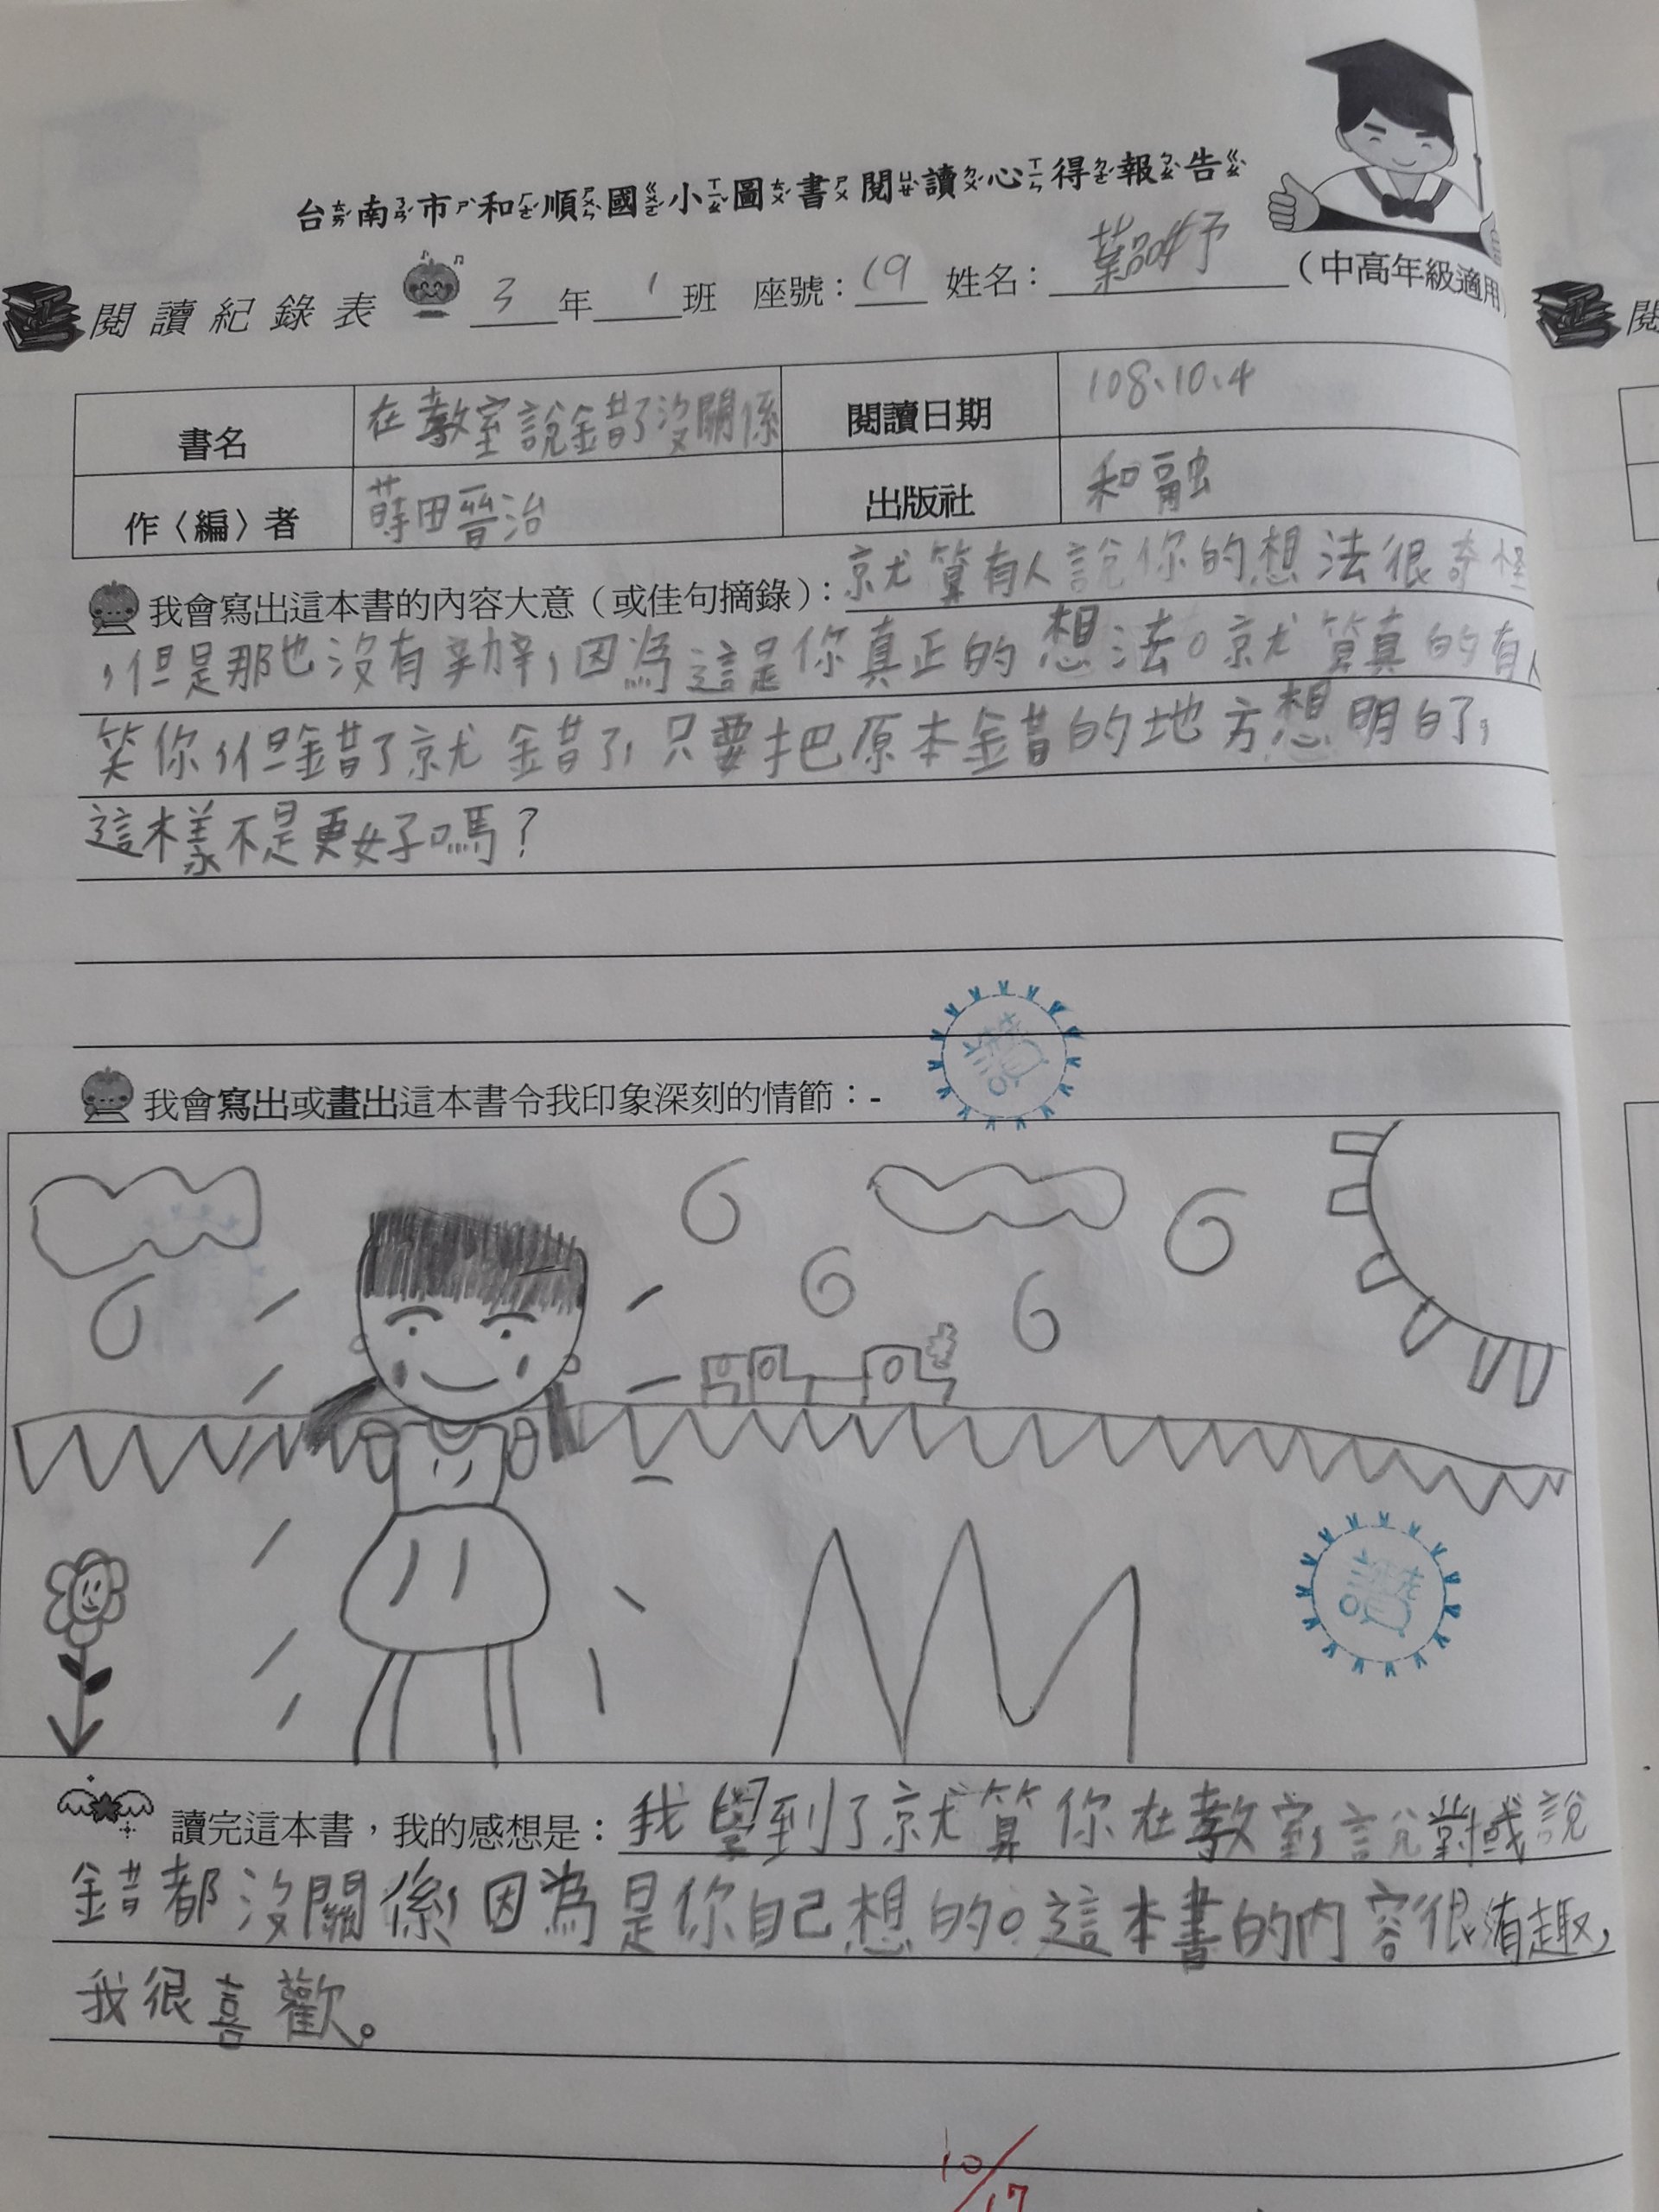 台南市和順國小圖書閱讀心得報告
閱讀紀錄表 3年1班 座號：19 姓名：葉 妤 （中高年級適用
書名 在教室說錯了沒關係 閱讀日期 108、10、4
作〈編〉者 蒔田晉治 出版社 和融
我會寫出這本書的內容大意（或佳句摘錄）：就算有人說你的想法很奇怪
，但是那也沒有辦，因為這是你真正的想法。就算真的有人
笑你，但錯了就錯了，只要把原本錯的地方想明白了，
這樣不是更好嗎？
讚
我會寫出或畫出這本書令我印象深刻的情節：-
讚
讀完這本書，我的感想是：我學到了就算你在教室，說對或說
錯都沒關係，因為是你自己想的。這本書的內容很有趣，
我很喜歡。
10/17